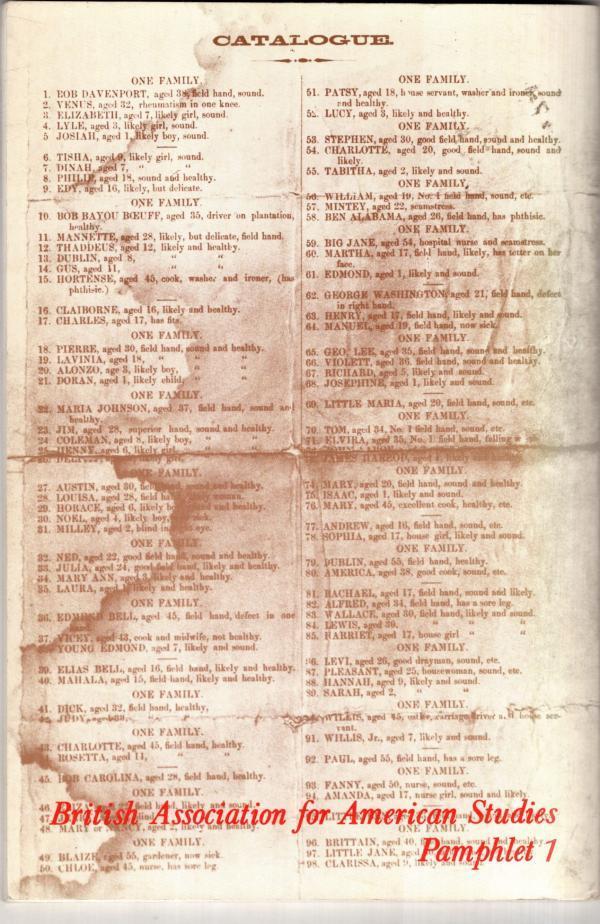 CATALOGUE.
ONE FAMILY.
1. BOB DAVENPORT, aged 38, field hand, sound.
2. VENUS, aged 32, rheumatism in one knee.
3. ELIZABETH, aged 7, likely girl, sound.
4. LYLE, aged 3, likely girl, sound.
5 JOSIAH, aged 1, likely boy, sound.
6. TISHA, aged 9, likely girl, sound.
7. DINAH, aged 7, " "
8. PHILIP, aged 18, sound and healthy.
9. EDY, aged 16, likely, but delicate.
ONE FAMILY.
10. BOB BAYOU BŒUFF, aged 35, driver on plantation,
healthy.
11. MANNETTE, aged 28, likely, but delicate, field hand.
12. THADDEUS, aged 12, likely and healthy.
13. DUBLIN, aged 8, " "
14. GUS, aged 11, " "
15. HORTENSE, aged 45, cook, washer and ironer, (has
phthisic.)
16. CLAIBORNE, aged 16, likely and healthy.
17. CHARLES, aged 17, has fits.
ONE FAMILY.
18. PIERRE, aged 30, field hand, sound and healthy.
19. LAVINIA, aged 18, " " "
20. ALONZO, age 3, likely boy, " "
21. DORAN, aged 1, likely child, " "
ONE FAMILY.
22. MARIA JOHNSON, aged 37, field hand, sound and
healthy.
23. JIM, aged 28, superior hand, sound and healthy.
24 COLEMAN, aged 8, likely boy, " "
25. HENNY, aged 6, likely girl,
26.
ONE FAMILY.
27. AUSTIN, aged 30,
28. LOUISA, aged 28, field woman.
29. HORACE, aged 6, likely
30. NOEL, aged 4, likely boy,
31. MILLEY, aged 2, blind eye.
ONE FAMILY.
32. NED, aged 22, good field hand, sound and healthy.
33. JULIA, aged 24, good hand, likely and healthy.
34. MARY ANN, aged likely and healthy.
35. LAURA, likely and healthy.
ONE FAMILY.
36. EDMUND BELL, aged 45, field hand, defect in one
37. VICEY, aged 43, cook and midwife, not healthy.
YOUNG EDMOND, aged 7, likely and sound.
39. ELIAS BELL, aged 16, field hand, likely and healthy.
40. MAHALA, aged 15, field hand, likely and healthy.
ONE FAMILY.
41. DICK, aged 32, field hand, healthy,
42. JUDY, aged
ONE FAMILY.
43. CHARLOTTE, aged 45, field hand, healthy.
ROSETTA, aged 11, " "
45. BOB CAROLINA, aged 28, field hand, healthy.
ONE FAMILY.
46.
47.
48. MARY or NANCY, aged 2, likely and healthy.
ONE FAMILY.
49. BLAIZE, aged 55, gardener, now sick.
50. CHLOE, aged 45, nurse, has sore leg.
ONE FAMILY.
51. PATSY, aged 18, house servant, washer and ironer, sound
and healthy.
52. LUCY, aged 3, likely and healthy.
ONE FAMILY.
53. STEPHEN, aged 30, good field hand, sound and healthy.
54. CHARLOTTE, aged 20, good field hand, sound and
likely.
55. TABITHA, aged 2, likely and sound.
ONE FAMILY,
56. WILLIAM, aged 19, No. 1 field hand, sound, etc.
57. MINTEY, aged 22, seamstress.
58. BEN ALABAMA, aged 26, field hand, has phthisic.
ONE FAMILY.
59. BIG JANE, aged 54, hospital nurse and seamstress.
60. MARTHA, aged 17, field hand, likely, has tetter on her
face.
61. EDMOND, aged 1, likely and sound.
62. GEORGE WASHINGTON, aged 21, field hand, defect
in right hand.
63. HENRY, aged 17, field hand, likely and sound.
64. MANUEL, aged 19, field hand, now sick.
ONE FAMILY.
65. GEO. LEE, aged 35, field hand, sound and healthy.
66. VIOLETT, aged 36, field hand, sound and healthy.
67. RICHARD, aged 5, likely and sound.
68. JOSEPHINE, aged 1, likely and sound.
69. LITTLE MARIA, aged 20, field hand, sound, etc.
ONE FAMILY.
70. TOM, aged 34, No. 1 field hand, sound, etc.
71. ELVIRA, aged 35, No. 1 field hand, falling
JAMES aged likely
ONE FAMILY.
74. MARY, aged 20, field hand, sound and healthy.
75. ISAAC, aged 1, likely and sound.
76. MARY, aged 45, excellent cook, healthy, etc.
77. ANDREW, aged 16, field hand, sound, etc.
78. SOPHIA, aged 17, house girl, likely and sound.
ONE FAMILY.
79. DUBLIN, aged 55, field hand, healthy.
80. AMERICA, aged 38, good cook, sound, etc.
81. RACHAEL, aged 17, field hand, sound and likely.
82. ALFRED, aged 34, field hand, has a sore leg.
83. WALLACE, aged 30, field hand, likely and sound.
84. LEWIS, aged 39, " " "
85. HARRIET, aged 17, house girl " "
ONE FAMILY.
86. LEVI, aged 26, good drayman, sound, etc.
87. PLEASANT, aged 25, housewoman, sound, etc.
88. HANNAH, aged 9, likely and sound.
89. SARAH, aged 2, " "
ONE FAMILY.
WILLIS, aged 45, carriage driver and house ser-
vant.
91. WILLIS, Jr., aged 7, likely and sound.
92. PAUL, aged 55, field hand, has a sore leg.
ONE FAMILY.
93. FANNY, aged 50, nurse, sound, etc.
94. AMANDA, aged 17, nurse girl, sound and likely.
ONE FAMILY.
96. BRITTAIN, aged 40, hand, sound and healthy.
97. LITTLE JANE,
98. CLARISSA, aged 9, likely and
British Association for American Studies
Pamphlet 1